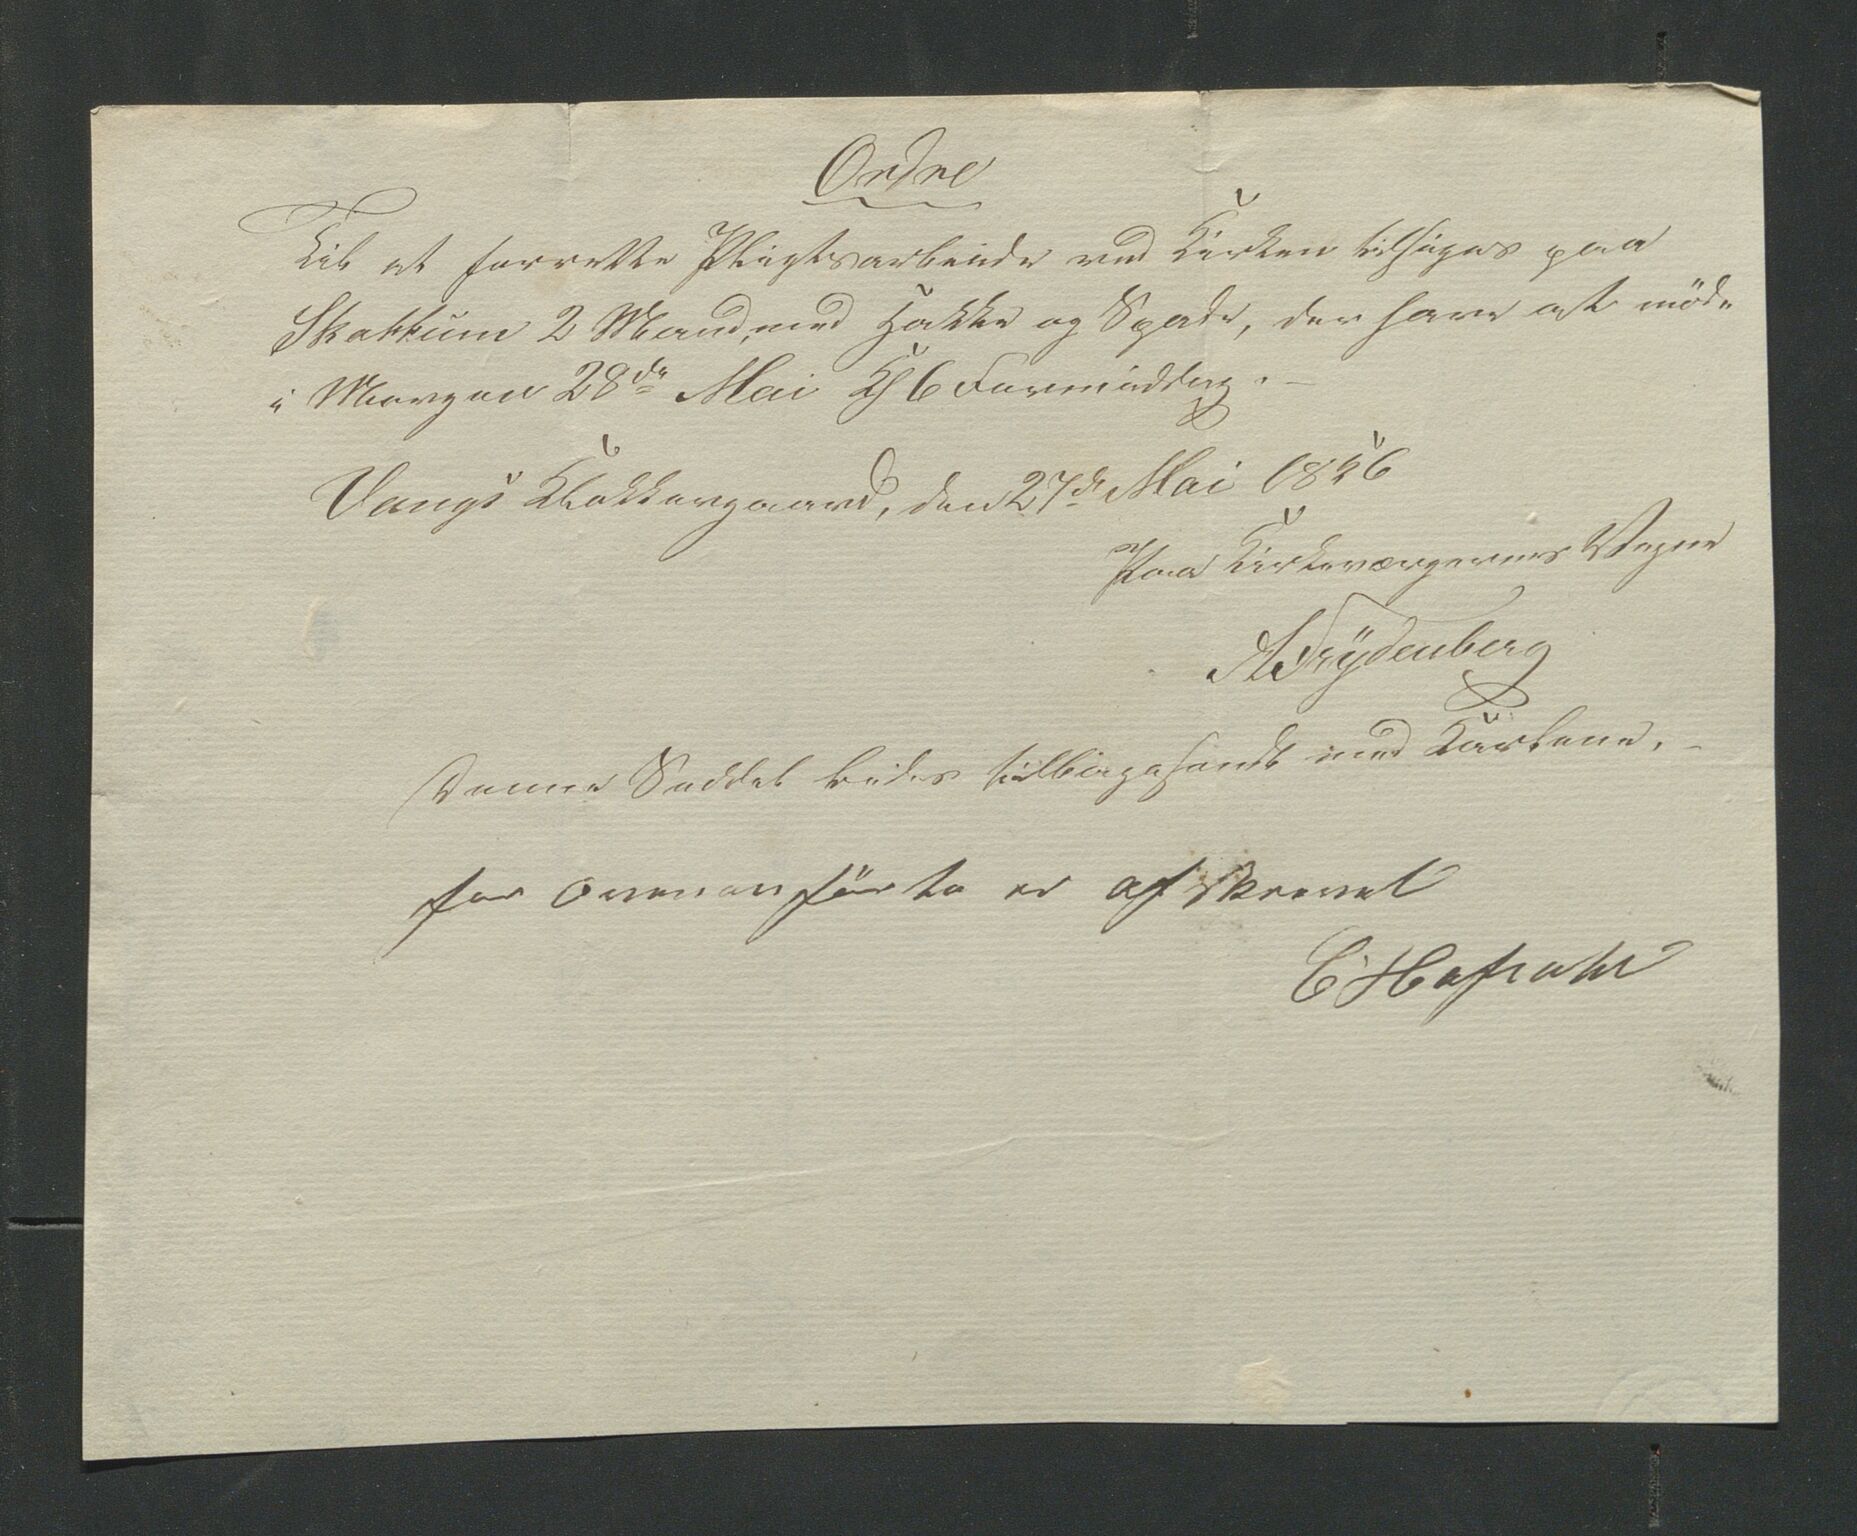 Ordre
Til at forrette Pligtsarbeide ved Kirken tilsiges paa
Skattum 2 Mand, med Hakke og Spade, der have at møde
i Morgen 28de Mai Kl 6 Formiddag. –
Vangs Klokkergaard, den 27de Mai 1846
Paa Kirkeværgernes Vegne
A Frydenberg
Denne Seddel bedes tilbagesendt med Karlene. –
for ovenanførte er afskrevet